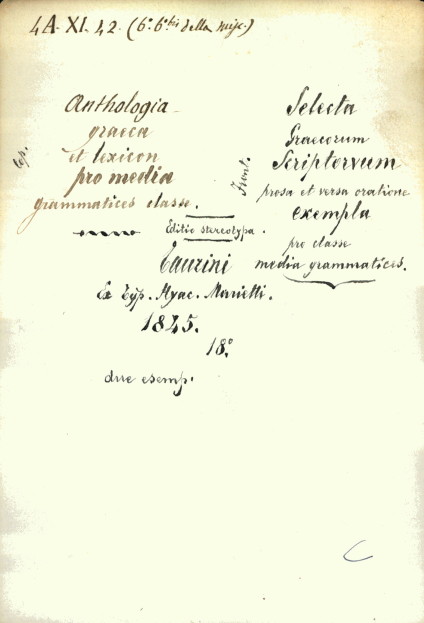 4A. XI. 42. (6.° 6.° bis della misc.)
Cop.
Anthologia
graeca
et lexicon
pro media
grammatices classe.
Front.
Selecta
Graecorum
Scriptorum
prosa et versa oratione
exempla
pro classe
media grammatices.
Editio stereotypa.
Taurini
Ex Typ. Hyac. Marietti.
1845.
18.°
due esemp.